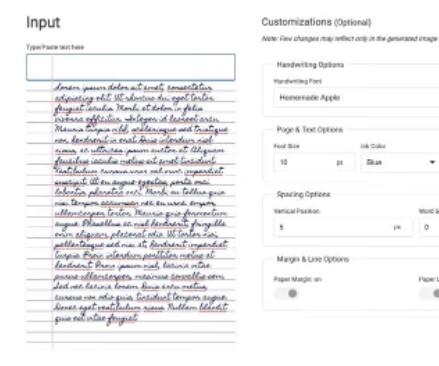 Input
Type/Paste text here
Lorem ipsum dolor sit amet, consectetur
adipiscing elit. Ut rhoncus dui eget tortor
feugiat iaculis. Morbi et dolor in felis
viverra efficitur. Integer id laoreet arcu.
Mauris turpis nibl, scelerisque sed tristique
non, hendrerit in erat. Duis interdum nisl
risus, ac ultrices ipsum auctor at. Aliquam
faucibus iaculis metus sit amet tincidunt.
Vestibulum cursus urna nisl imperdiet
suscipit. Ut eu augue egestas, porta
lobortis, pharetra orci. Morbi eu tellus quis
nisi tempor accumsan nec eu
ullamcorper tortor. Mauris quis fermentum
augue. Phasellus ac nisl hendrerit, fringilla
enim aliquam, placerat odio. Ut tortor nisi,
pellentesque sed nisi at, hendrerit imperdiet
turpis. Proin interdum porttitor metus at
hendrerit. Proin ipsum nisl, lacinia vitae
ullamcorper, maximus convallis sem.
Sed nec lacinia lorem. Duis arcu metus,
cursus non odio quis, tincidunt tempor augue.
Donec eget vestibulum risus. Nullam blandit
quis est vitae feugiat.
Customizations (Optional)
Note: Few changes may reflect only in the generated image
Handwriting Options
Handwriting Font
Homemade Apple
Page & Text Options
Font Size
Ink Color
10
px
Blue
Spacing Options
Vertical Position
Word S
5
px
0
Margin & Line Options
Paper Margin: on
Paper L